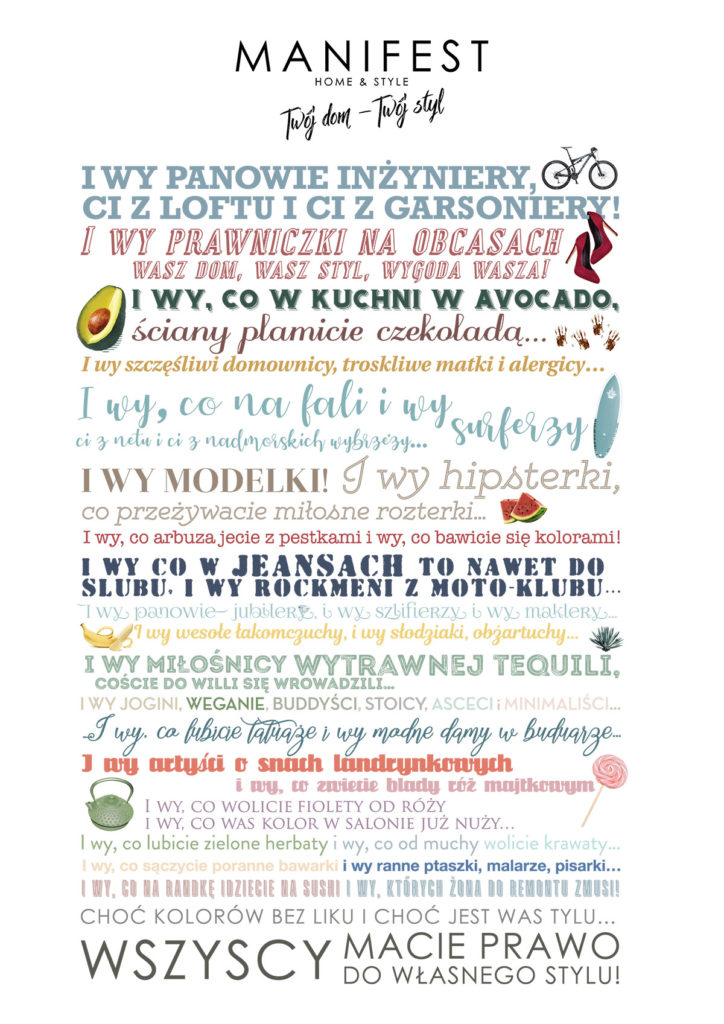 MANIFEST
HOME & STYLE
Twój dom – Twój styl
I WY PANOWIE INŻYNIERY,
CI Z LOFTU I CI Z GARSONIERY!
I WY PRAWNICZKI NA OBCASACH
WASZ DOM, WASZ STYL, WYGODA WASZA!
I WY, CO W KUCHNI W AVOCADO,
ściany plamicie czekoladą...
I wy szczęśliwi domownicy, troskliwe matki i alergicy...
I wy, co na fali i wy surferzy
ci z netu i ci z nadmorskich wybrzeży...
I WY MODELKI! I wy hipsterki,
co przeżywacie miłosne rozterki...
I wy, co arbuza jecie z pestkami i wy, co bawicie się kolorami!
I WY CO W JEANSACH TO NAWET DO
SLUBU, I WY ROCKMENI Z MOTO-KLUBU...
I wy panowie- jubilery, i wy szlifierzy i wy maklery...
I wy wesołe łakomczuchy, i wy słodziaki, obżartuchy...
I WY MIŁOŚNICY WYTRAWNEJ TEQUILI,
COŚCIE DO WILLI SIĘ WROWADZILI...
I WY JOGINI, WEGANIE, BUDDYŚCI, STOICY, ASCECI i MINIMALIŚCI...
...I wy, co lubicie tatuaże i wy modne damy w buduarze...
I wy artyści o snach landrynkowych
i wy, co zwiecie blady róż majtkowym
I WY, CO WOLICIE FIOLETY OD RÓŻY
I WY, CO WAS KOLOR W SALONIE JUŻ NUŻY...
I wy, co lubicie zielone herbaty i wy, co od muchy wolicie krawaty...
I wy, co sączycie poranne bawarki i wy ranne ptaszki, malarze, pisarki...
I WY, CO NA RANDKĘ IDZIECIE NA SUSHI I WY, KTÓRYCH ŻONA DO REMONTU ZMUSI!
CHOĆ KOLORÓW BEZ LIKU I CHOĆ JEST WAS TYLU...
WSZYSCY MACIE PRAWO
DO WŁASNEGO STYLU!